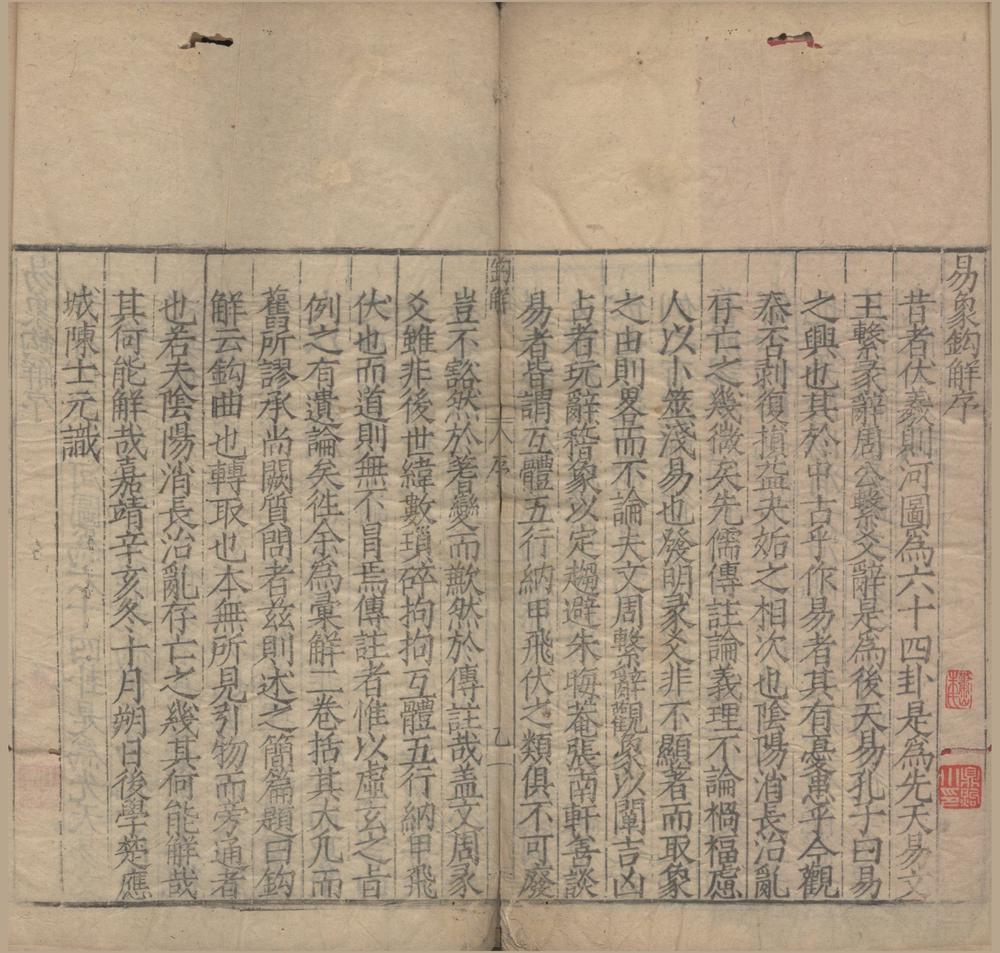 易象鈎解序
昔者伏羲則河圖爲六十四卦是爲先天易文
王繫彖辭周公繫爻辭是爲後天易孔子曰易
之興也其於中古乎作易者其有憂患乎今觀
泰否剥復損益夬姤之相次也陰陽消長治亂
存亡之幾微矣先儒傳註論義理不論禍福慮
人以卜筮淺易也發明彖爻非不顯著而取象
之由則畧而不論夫文周繫辭觀象以闡吉凶
占者玩辭稽象以定趨避朱晦菴張南軒善談
易者皆謂互體五行納甲飛伏之類俱不可廢
鈎解
序
乙
豈不豁然於蓍變而歉然於傳註哉盖文周彖
爻雖非後世緯數瑣碎拘拘互體五行納甲飛
伏也而道則無不冐焉傳註者惟以虛玄之旨
例之有遺論矣徃余爲彙解二卷括其大凡而
舊所謬承尚闕質問者茲則述之簡篇題曰鈎
解云鈎曲也轉取也本無所見引物而旁通者
也若夫陰陽消長治亂存亡之幾其何能解哉
其何能解哉嘉靖辛亥冬十月朔日後學楚應
城陳士元識